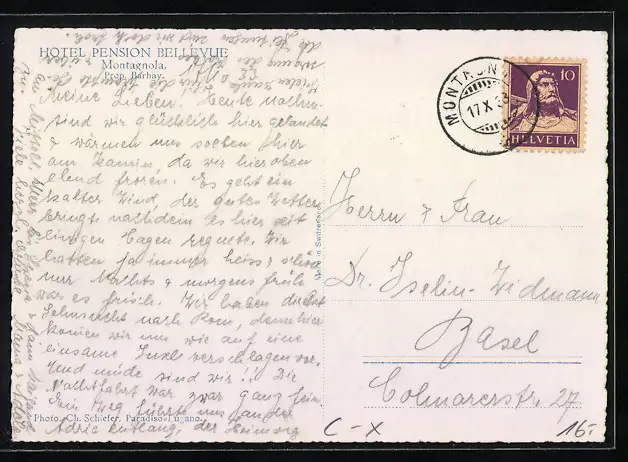 HOTEL PENSION BELLEVUE
Montagnola.
Prop. Barbay.
Meine Lieben. Heute nachm.
sind wir glücklich hier gelandet
& wärmen uns soeben hier
am Kamin, da wir hier oben
elend froren. Es geht ein
kalter Wind, der gutes Wetter
bringt, nachdem es hier seit
einigen Tagen regnete. Wir
hatten ja immer heiss &
nur Nachts & morgens früh
war es frisch. Wir haben direkt
Sehnsucht nach Rom, denn hier
kommen wir uns wie auf eine
einsame Insel verschlagen vor.
Und müde sind wir!! Die
Nachtfahrt war zwar ganz fein.
Ein Zug führte uns an der
Adria entlang, der Heimweg
Photo. Ch. Schiefer, Paradiso-Lugano.
Made in Switzerland
MONTAGNOLA
17.X.33
10
HELVETIA
Herrn & Frau
Dr. Iselin-Widmann
Basel
Colmarerstr. 27
C-X
16-